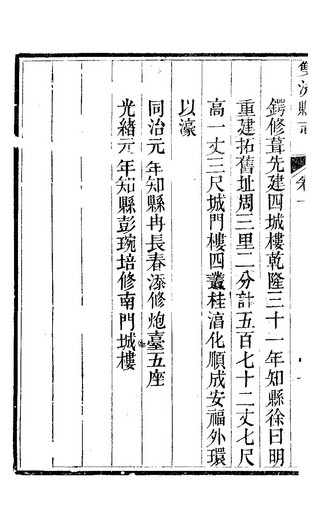 雙流縣志 卷一
鍔修葺先建四城樓乾隆三十一年知縣徐曰明
重建拓舊址周三里二分計五百七十二丈七尺
高一丈三尺城門樓四叢桂滀化順成安福外環
以濠
同治元年知縣冉長春添修炮臺五座
光緒元年知縣彭琬培修南門城樓